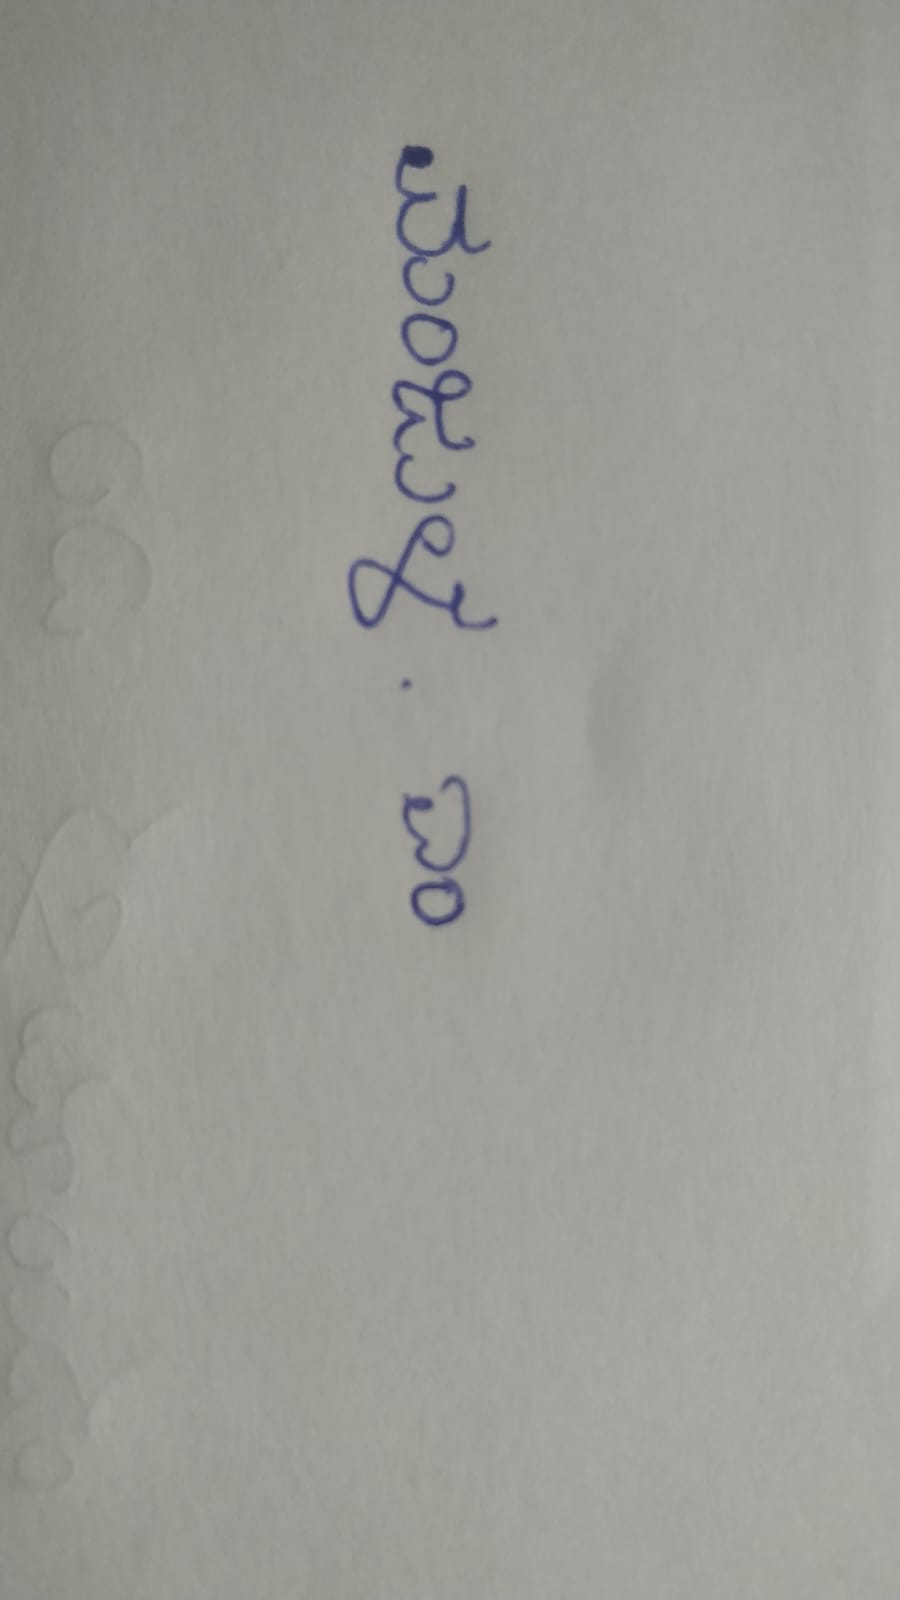 ಮಂಜುಳ. ಎಂ